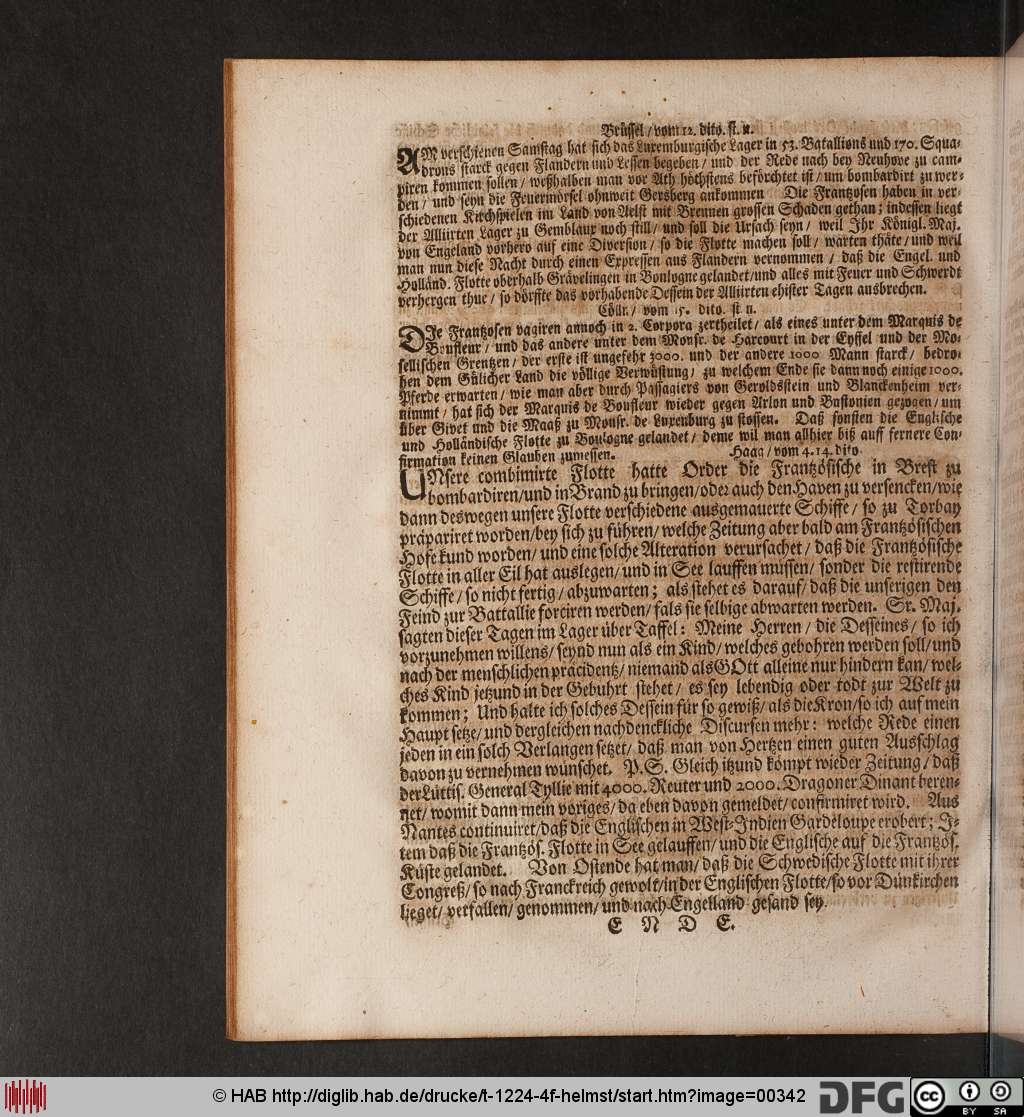 Brüssel / vom 12. dito. st. n.
AM verschienen Samstag hat sich das Luxemburgische Lager in 53. Batallions und 170. Squa-
drons starck gegen Flandern und Lessen begeben / und der Rede nach bey Neuhove zu cam-
piren kommen sollen / weßhalben man vor Ath höchstens beförchtet ist / um bombardirt zu wer-
den / und seyn die Feuermörsel ohnweit Gersberg ankommen Die Frantzosen haben in ver-
schiedenen Kirchspielen im Land von Aelst mit Brennen grossen Schaden gethan; indessen liegt
der Alliirten Lager zu Gemblaux noch still / und soll die Ursach seyn / weil Ihr Königl. Maj.
von Engeland vorhero auf eine Diversion / so die Flotte machen soll / warten thäte / und weil
man nun diese Nacht durch einen Expressen aus Flandern vernommen / daß die Engel. und
Holländ. Flotte oberhalb Grävelingen in Boulogne gelandet/und alles mit Feuer und Schwerdt
verhergen thue / so dörffte das vorhabende Dessein der Alliirten ehister Tagen ausbrechen.
Cölln / vom 15. dito. st n.
DIe Frantzosen vagiren annoch in 2. Corpora zertheilet / als eines unter dem Marquis de
Boufleur / und das andere unter dem Monsr. de Harcourt in der Eyffel und der Mo-
sellischen Grentzen / der erste ist ungefehr 3000. und der andere 1000 Mann starck / bedro-
hen dem Gülicher Land die völlige Verwüstung / zu welchem Ende sie dann noch einige 1000.
Pferde erwarten / wie man aber durch Passagiers von Geroldsstein und Blanckenheim ver-
nimmt / hat sich der Marquis de Boufleur wieder gegen Arlon und Bastonien gezogen / um
über Givet und die Maaß zu Monsr. de Luxenburg zu stossen. Daß sonsten die Englische
und Holländische Flotte zu Boulogne gelandet / deme wil man allhier biß auff fernere Con-
firmation keinen Glauben zumessen. Haag / vom 4. 14. dito
UNsere combimirte Flotte hatte Order die Frantzösische in Brest zu
bombardiren/und in Brand zu bringen/oder auch den Haven zu versencken/wie
dann deswegen unsere Flotte verschiedene ausgemauerte Schiffe / so zu Torbay
präpariret worden/bey sich zu führen / welche Zeitung aber bald am Frantzösischen
Hofe kund worden / und eine solche Alteration verursachet / daß die Frantzösische
Flotte in aller Eil hat auslegen / und in See lauffen müssen / sonder die restirende
Schiffe / so nicht fertig / abzuwarten ; als stehet es darauf / daß die unserigen den
Feind zur Battallie forciren werden / fals sie selbige abwarten werden. Sr. Maj.
sagten dieser Tagen im Lager über Taffel : Meine Herren / die Desseines / so ich
vorzunehmen willens / seynd nun als ein Kind / welches gebohren werden soll / und
nach der menschlichen präcidentz / niemand als GOtt alleine nur hindern kan / wel-
ches Kind jetzund in der Gebuhrt stehet / es sey lebendig oder todt zur Welt zu
kommen ; Und halte ich solches Dessein für so gewiß / als die Kron / so ich auf mein
Haupt setze / und dergleichen nachdenckliche Discursen mehr : welche Rede einen
jeden in ein solch Verlangen setzet / daß man von Hertzen einen guten Ausschlag
davon zu vernehmen wünschet. P. S. Gleich itzund kömpt wieder Zeitung / daß
der Lüttis. General Tyllie mit 4000. Reuter und 2000. Dragoner Dinant beren-
net / womit dann mein voriges / da eben davon gemeldet / confirmiret wird. Aus
Nantes continuiret/daß die Englischen in West-Indien Gardeloupe erobert ; I-
tem daß die Frantzös. Flotte in See gelauffen / und die Englische auf die Frantzös.
Küste gelandet. Von Ostende hat man / daß die Schwedische Flotte mit ihrer
Congreß / so nach Franckreich gewolt / in der Englischen Flotte / so vor Dünkirchen
lieget / verfallen / genommen / und nach Engelland gesand sey.
E N D E.
© HAB http://diglib.hab.de/drucke/t-1224-4f-helmst/start.htm?image=00342
DFG
cc
BY SA